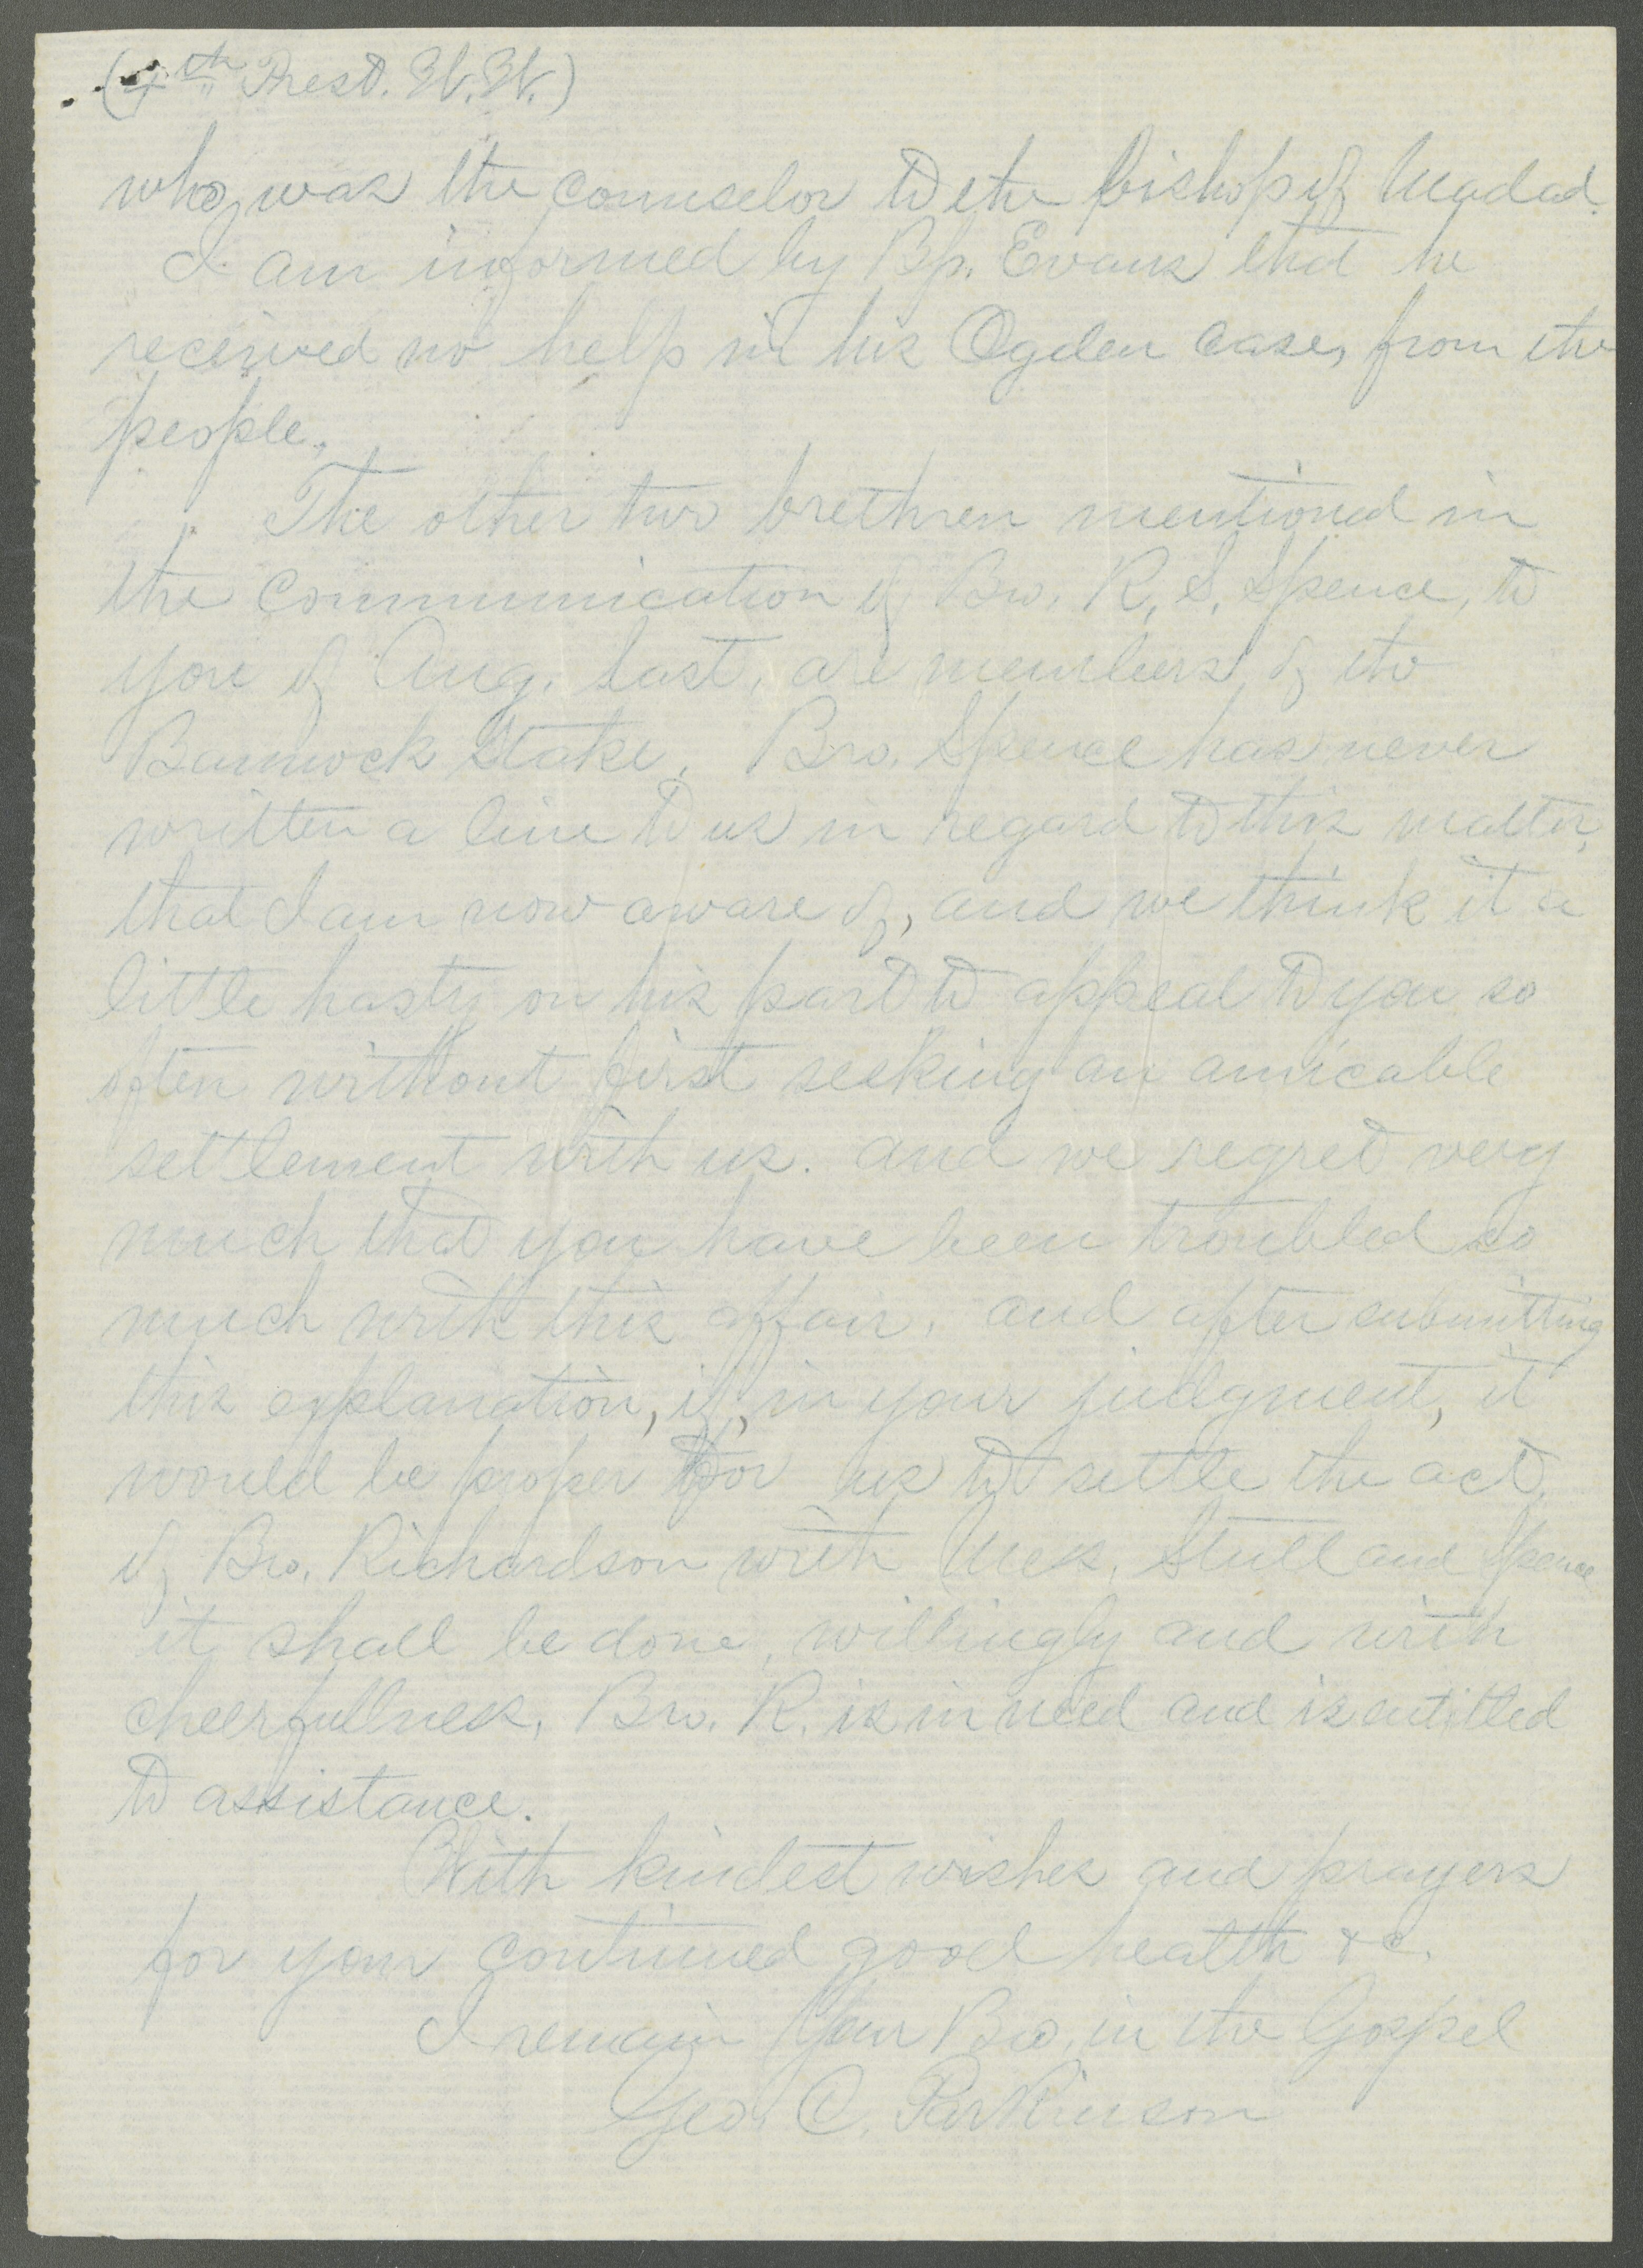 (4th Prest. W.W.)
who was the counselor to the bishop of Malad.
I am informed by Bp. Evans that he
received no help in his Ogden case, from the
people.
The other two brethren mentioned in
the communication of Bro. R. S. Spence, to
you of Aug. last, are members of the
Bannock Stake. Bro. Spence has never
written a line to us in regard to this matter,
that I am now aware of, and we think it a
little hasty on his part to appeal to you so
often without first seeking an amicable
settlement with us. and we regret very
much that you have been troubled so
much with this affair, and after submitting
this explanation, if, in your judgment, it
would be proper for us to settle the act.
of Bro. Richardson with Mess. Stull and Spence
it shall be done, willingly and with
cheerfullness, Bro. R. is in need and is entitled
to assistance.
With kindest wishes and prayers
for your continued good health &c.
I remain Your Bro. in the Gospel
Geo. C. Parkinson